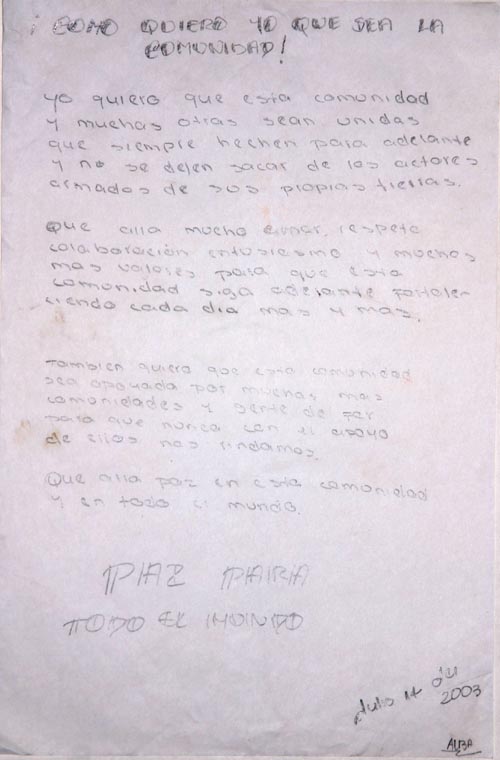 ¡ COMO QUIERO YO QUE SEA LA
COMUNIDAD!
Yo quiero que esta comunidad
y muchas otras sean unidas
que siempre hechen para adelante
y no se dejen sacar de los actores
armados de sus propias tierras.
Que alla mucho amor, respeto
colaboración entusiasmo y muchos
mas valores para que esta
comunidad siga adelante fortale-
ciendo cada dia mas y mas.
tambien quiero que esta comunidad
sea apoyada por muchas mas
comunidades y gente de
para que nunca con el apoyo
de ellos nos rindamos.
Que alla paz en esta comunidad
y en todo el mundo.
PAZ PARA
TODO EL MUNDO
Julio 14 del
2003
ALBA